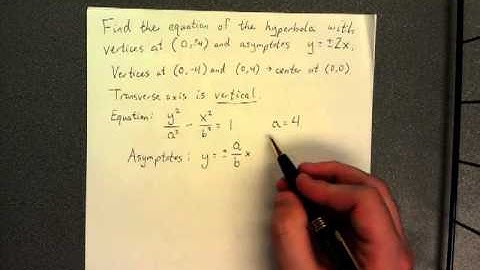 Find the equation of the hyperbola with
vertices at (0,±4) and asymptotes y=±2x.
Vertices at (0,-4) and (0,4) → center at (0,0)
Transverse axis is vertical.
Equation: y²/a² - x²/b² = 1 a=4
Asymptotes: y=± a/b x